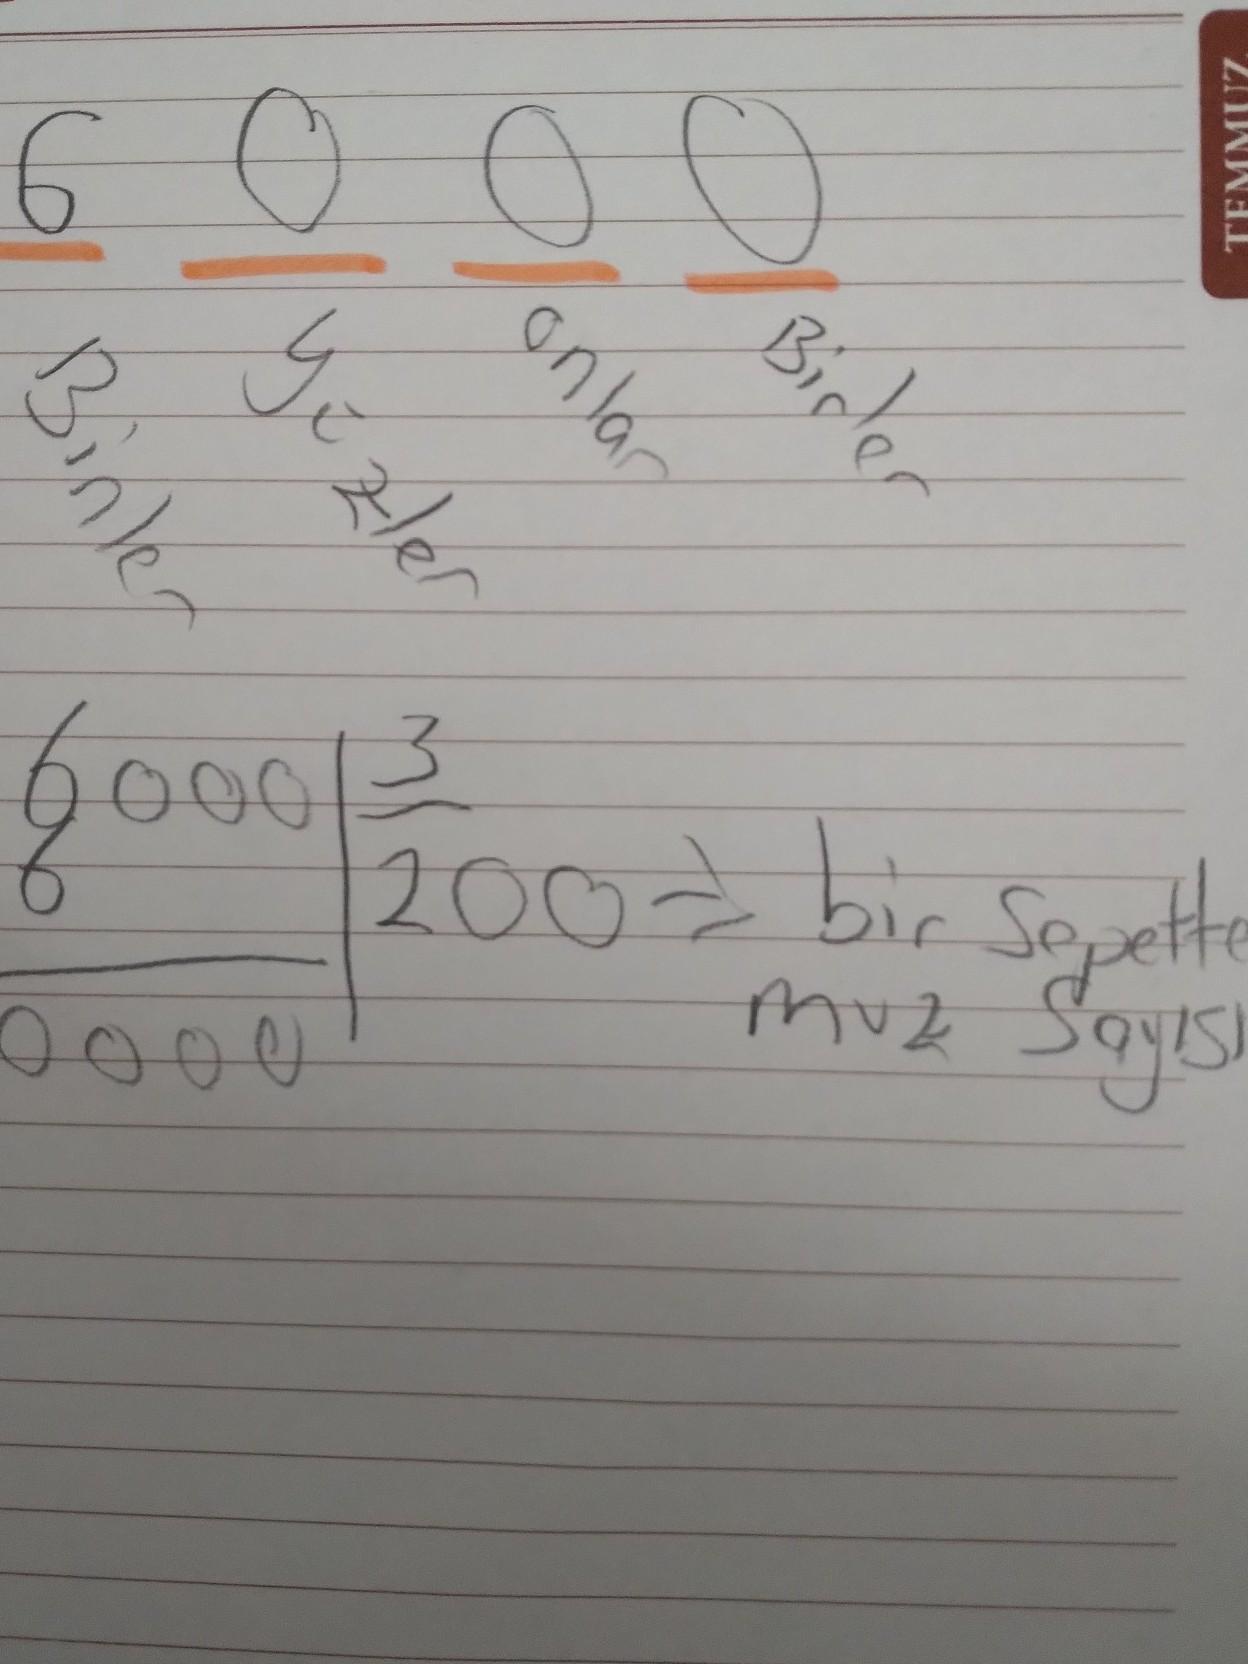 TEMMUZ
6 0 0 0
Binler Yüzler onlar Birler
6000 | 3
6 200 => bir Sepette
muz Sayısı
0000